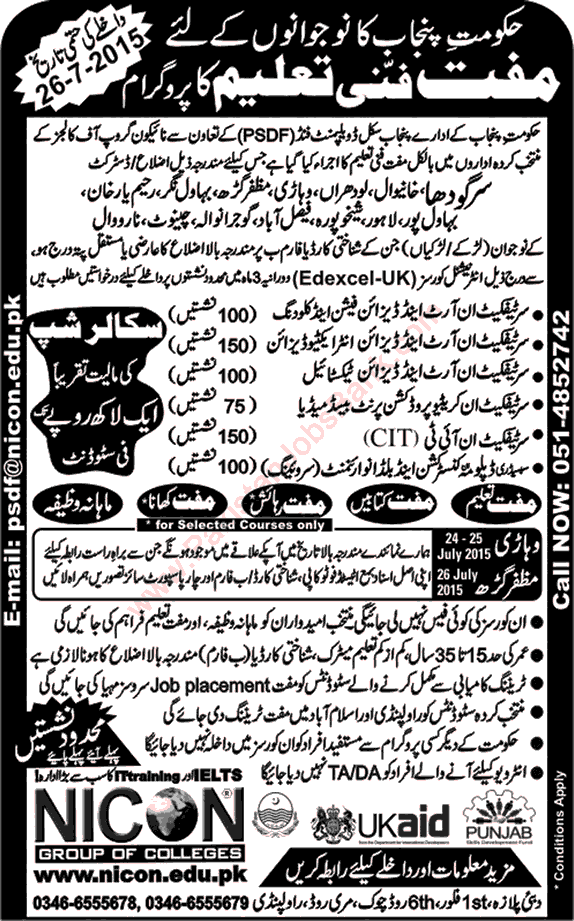 داخلے کی حتمی تاریخ
26-7-2015
حکومتِ پنجاب کا نوجوانوں کے لئے
مفت فنّی تعلیم کا پروگرام
حکومتِ پنجاب کے ادارے پنجاب سکل ڈویلپمنٹ فنڈ (PSDF) کے تعاون سے نائیکون گروپ آف کالجز کے
منتخب کردہ اداروں میں بالکل مفت فنی تعلیم کا اجراء کیا گیا ہے جس کیلئے مندرجہ ذیل اضلاع / ڈسٹرکٹ
سرگودھا، خانیوال، لودھراں، وہاڑی، مظفرگڑھ، بہاولنگر، رحیم یارخان،
بہاولپور، لاہور، شیخوپورہ، فیصل آباد، گوجرانوالہ، چنیوٹ، نارووال
کے نوجوان (لڑکے / لڑکیاں) جن کے شناختی کارڈ یا فارم ب پر مندرجہ بالا اضلاع کا عارضی یا مستقل پتہ درج ہو،
سے درج ذیل انٹرنیشنل کورسز (Edexcel-UK) دورانیہ 3 ماہ میں محدود نشستوں پر داخلے کیلئے درخواستیں مطلوب ہیں
سرٹیفکیٹ ان آرٹ اینڈ ڈیزائن فیشن اینڈ کلودنگ (100 نشستیں)
سرٹیفکیٹ ان آرٹ اینڈ ڈیزائن انٹرایکٹیو ڈیزائن (150 نشستیں)
سرٹیفکیٹ ان آرٹ اینڈ ڈیزائن ٹیکسٹائیل (100 نشستیں)
سرٹیفکیٹ ان کریٹیو پروڈکشن پرنٹ بیسڈ میڈیا (75 نشستیں)
سرٹیفکیٹ ان آئی ٹی (CIT) (150 نشستیں)
سبسڈری ڈپلومہ کنسٹرکشن اینڈ بلڈ انوائرنمنٹ (سروئینگ) (100 نشستیں)
سکالرشپ
کی مالیت تقریباً
ایک لاکھ روپے تک
فی سٹوڈنٹ
مفت تعلیم
مفت کتابیں
مفت رہائش*
مفت کھانا*
ماہانہ وظیفہ
* for Selected Courses only
وہاڑی 24 - 25 July 2015
مظفرگڑھ 26 July 2015
ہمارے نمائندے مندرجہ بالا تاریخ میں آپکے علاقے میں موجود ہونگے جن سے براہِ راست رابطہ کیلئے
اپنی اصل اسناد بمع اٹیسٹڈ فوٹو کاپی، شناختی کارڈ / ب فارم اور چار پاسپورٹ سائز تصویریں ہمراہ لائیں
ان کورسز کی کوئی فیس نہیں لی جائیگی منتخب امیدواران کو ماہانہ وظیفہ، اور مفت تعلیم فراہم کی جائیں گی
عمر کی حد 15 تا 35 سال، کم از کم تعلیم میٹرک، شناختی کارڈ یا (ب فارم) مندرجہ بالا اضلاع کا ہونا لازمی ہے
ٹریننگ کامیابی سے مکمل کرنے والے سٹوڈنٹس کو مفت Job placement سروسز مہیا کی جائیں گی
منتخب کردہ سٹوڈنٹس کو راولپنڈی اور اسلام آباد میں مفت ٹریننگ دی جائے گی
حکومت کے دیگر کسی پروگرام سے مستفید افراد کو ان کورسز میں داخلہ نہیں دیا جائیگا
انٹرویو کیلئے آنے والے افراد کو TA/DA نہیں دیا جائیگا
محدود نشستیں
پہلے آئیے پہلے پائیے
IELTS اور ITtraining کا سب سے بڑا ادارہ
NICON®
GROUP OF COLLEGES
www.nicon.edu.pk
UKaid
from the Department for International Development
PUNJAB
Skills Development Fund
مزید معلومات اور داخلے کیلئے رابطہ کریں
دبئی پلازہ، 1st فلور، 6th روڈ چوک، مری روڈ، راولپنڈی 0346-6555678, 0346-6555679
E-mail: psdf@nicon.edu.pk
Call NOW: 051-4852742
* Conditions Apply
www.PakistanJobsBank.com